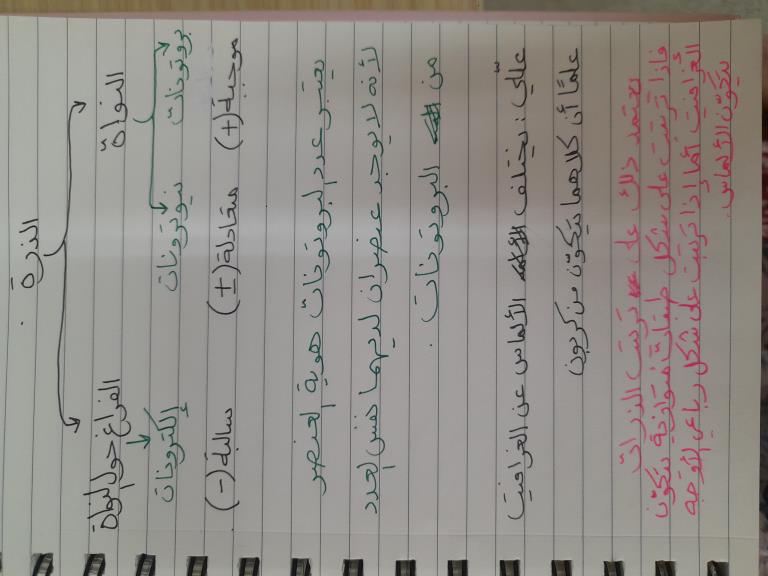 الذرة .
النواة الفراغ حول النواة
بروتونات نيوترونات إلكترونات
موجبة (+) متعادلة (±) سالبة (-)
يعتبر عدد البروتونات هوية العنصر
لأنه لا يوجد عنصران لديهما نفس العدد
من البروتونات .
علّلي : يختلف الألماس عن الغرافيت
علمًا أن كلاهما يتكوّن من كربون
يعتمد ذلك على ترتيب الذرات
فإذا ترتبت على شكل طبقات متوازية يتكوّن
الغرافيت أما إذا ترتبت على شكل رباعي الأوجه
يتكوّن الألماس .